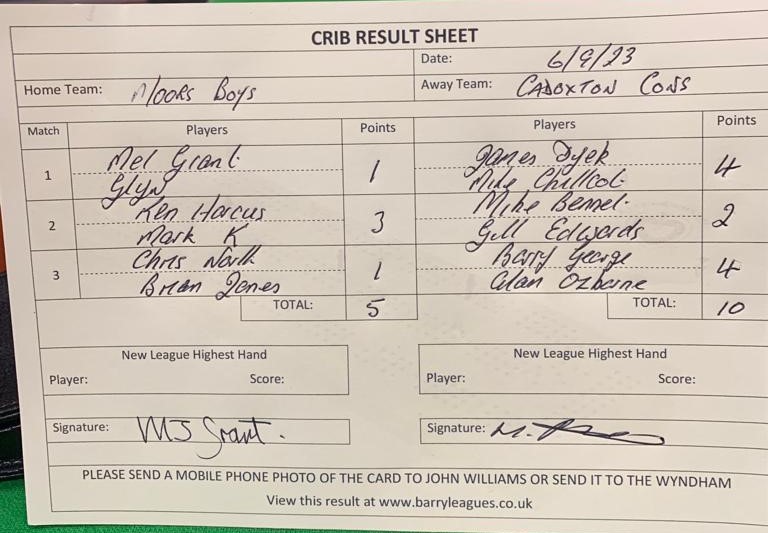 CRIB RESULT SHEET
Date: 6/9/23
Home Team: Moors Boys Away Team: CADOXTON CONS
Match Players Points Players Points
1 Mel Grant 1 James Dyer 4
Glyn Mike Chillcot
2 Ken Harcus 3 Mike Bennet 2
Mark K Gill Edwards
3 Chris North 1 Barry George 4
Brian Jones Alan Ozborne
TOTAL: 5 TOTAL: 10
New League Highest Hand New League Highest Hand
Player: Score: Player: Score:
Signature: MJ Grant. Signature: M.
PLEASE SEND A MOBILE PHONE PHOTO OF THE CARD TO JOHN WILLIAMS OR SEND IT TO THE WYNDHAM
View this result at www.barryleagues.co.uk